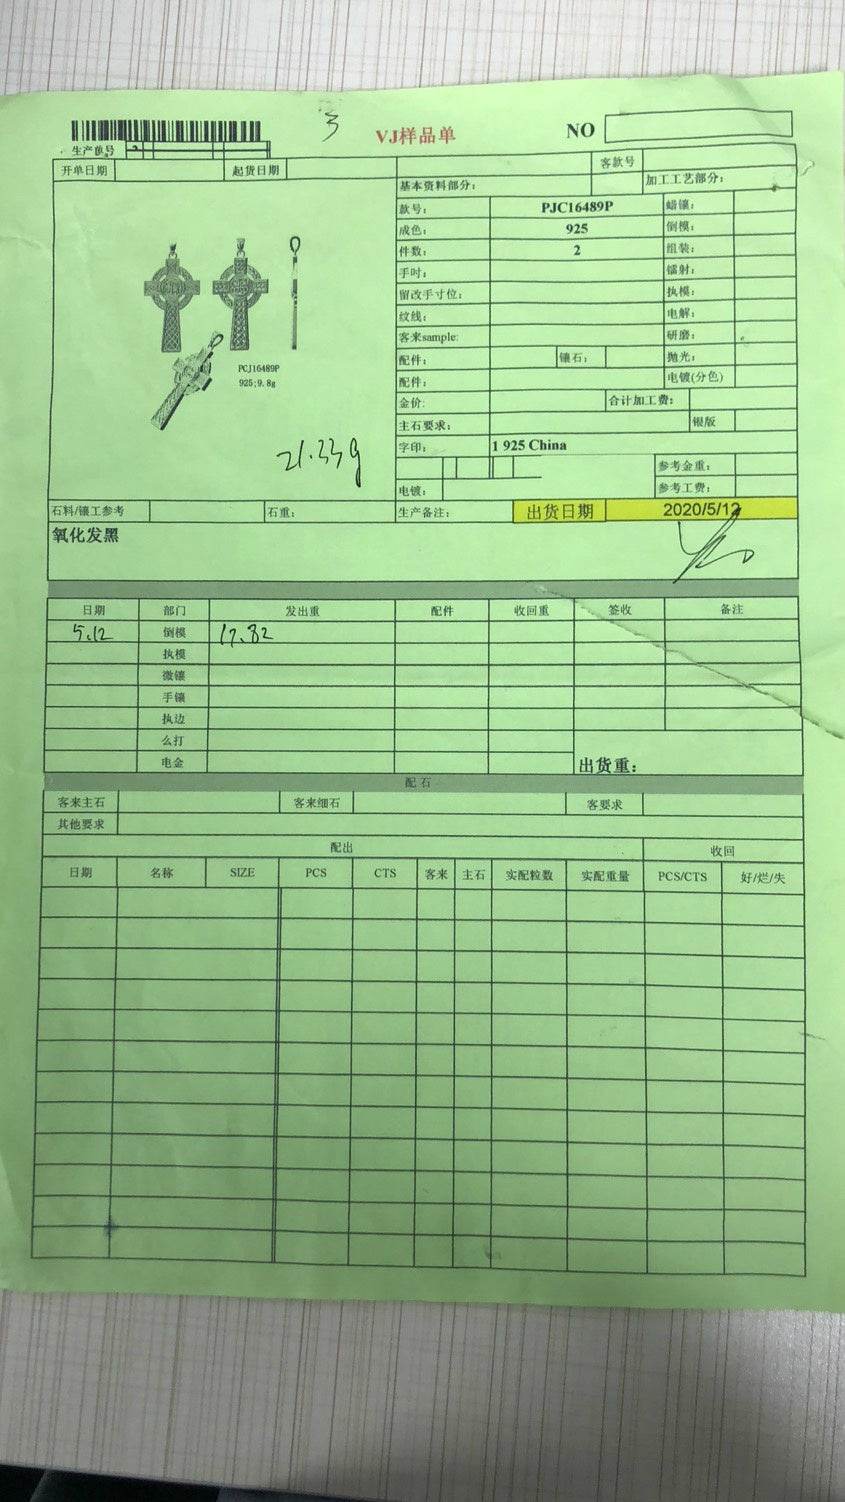 3
VJ样品单
NO
生产单号
开单日期 起货日期 客款号
基本资料部分: 加工工艺部分:
款号: PJC16489P 蜡镶:
成色: 925 倒模:
件数: 2 组装:
手吋: 镭射:
留改手寸位: 执模:
纹线: 电解:
客来sample: 研磨:
配件: 镶石: 抛光:
配件: 电镀(分色)
金价: 合计加工费:
主石要求: 银版
字印: 1 925 China
参考金重:
电镀: 参考工费:
PCJ16489P
925;9.8g
21.33g
石料/镶工参考 石重: 生产备注: 出货日期 2020/5/12
氧化发黑
日期 部门 发出重 配件 收回重 签收 备注
5.12 倒模 17.82
执模
微镶
手镶
执边
么打
电金
出货重:
配石
客来主石 客来细石 客要求
其他要求
配出 收回
日期 名称 SIZE PCS CTS 客来 主石 实配粒数 实配重量 PCS/CTS 好/烂/失